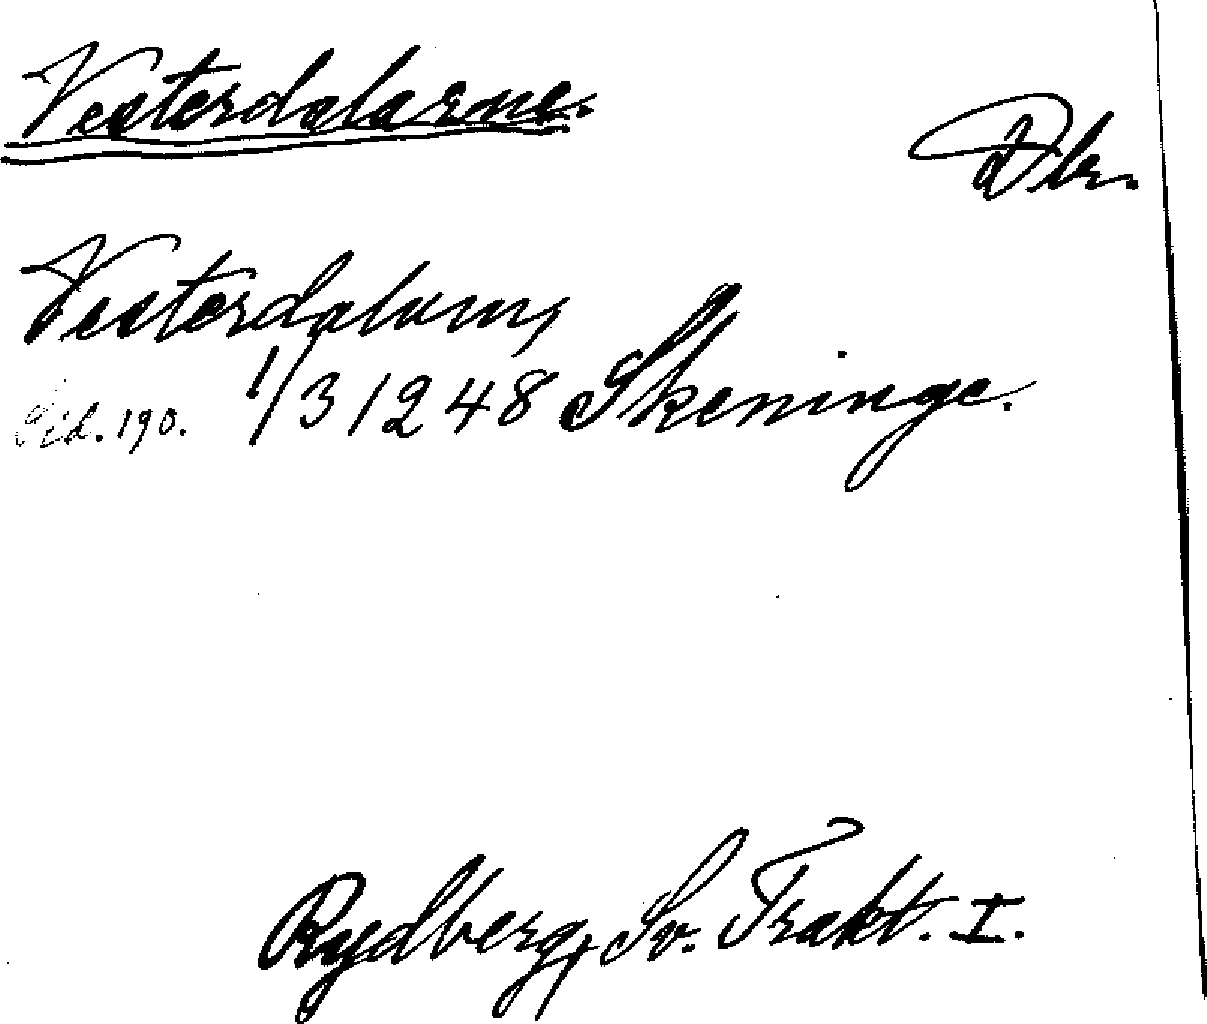 Vesterdalarne.
Dlr.
Vesterdalum,
Sid. 190. 1/3 1248 Skeninge.
Rydberg, Sv. Trakt. I.